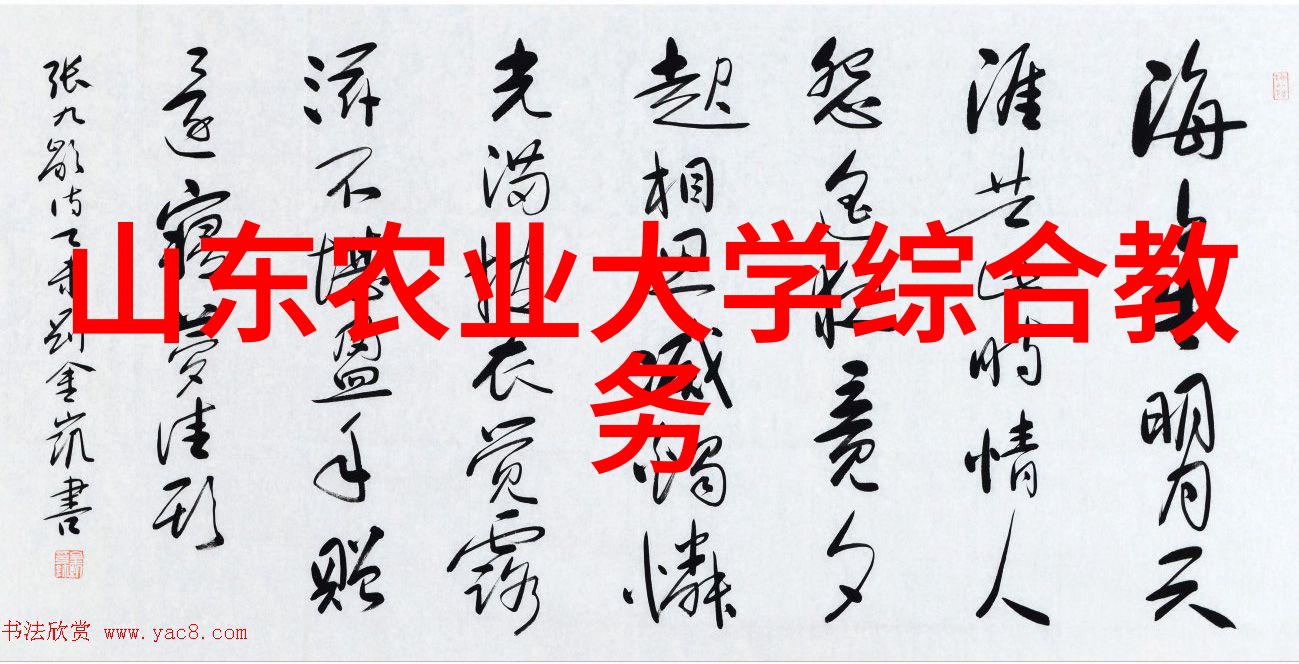 山东农业大学综合教
务
海上生明月天
涯共此时情人
怨遥夜竟夕
起相思滅燭憐
光满披衣觉露
滋不堪盈手赠
还寝梦佳期
张九龄诗 金凯書
书法欣赏 www.yac8.com